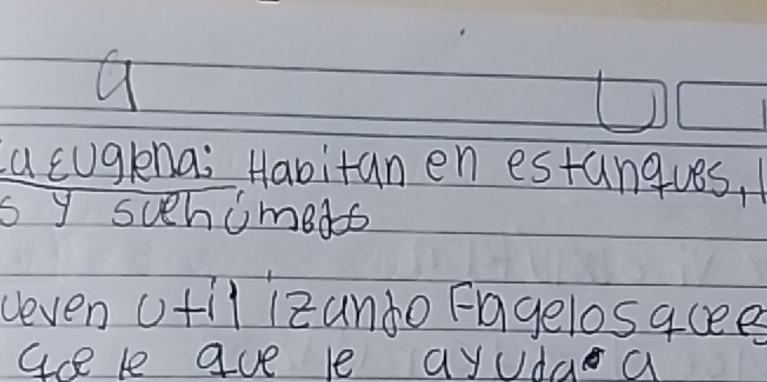 a U
La Euglena: Habitan en estanques, l
s y suehúmedos
ueven utilizando Flagelos que es
que le que le ayuda a